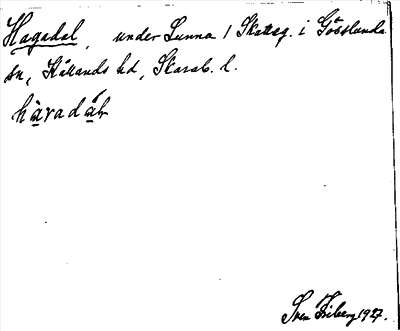 Hagadal, under Lunna 1 Skattsg. i Gösslunda
sn, Kållands hd, Skarab. l.
hàvadáḷ
Sven Friberg 1927.